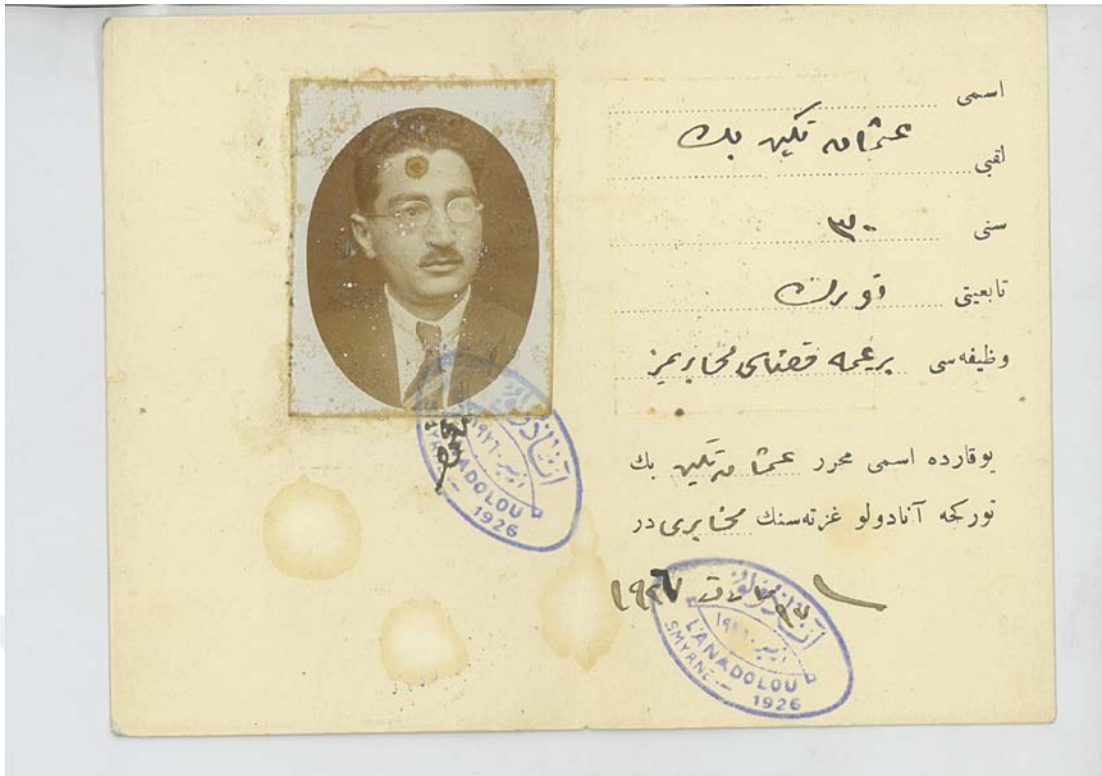 اسمی
عثمان تكین بك
لقبی
سنی ٣٠
تابعیتی تورك
وظیفه‌سی برغمه قضاسی مخابریمز
یوقارده اسمی محرر عثمان تكین بك
تورکجه آنادولو غزته‌سنك مخابری در
مارت ١٩٢٧
آنادولو
ازمیر ١٩٢٦
L'ANADOLOU
SMYRNE
1926
آنادولو
ازمیر ١٩٢٦
L'ANADOLOU
SMYRNE
1926